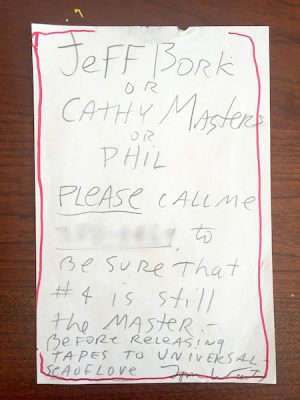 JEFF BORK
OR
CATHY MASTERS
OR
PHIL
PLEASE CALL ME
to
BE SURE THAT
#4 is still
the MASTER.-
BEFORE RELEASING
TAPES TO UNIVERSAL -
Tom Wait